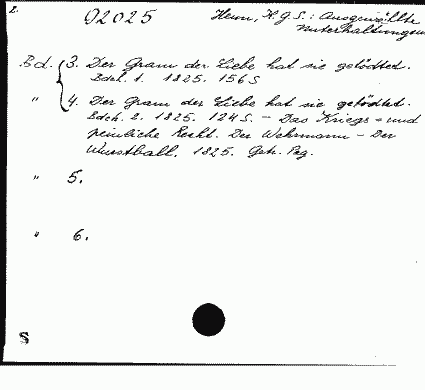 2.
Q2025
Heun, H.G.S.: Ausgewählte
Unterhaltungen
Bd. 3. Der Gram der Liebe hat sie getödtet.
Bdch. 1. 1825. 156 S
" 4. Der Gram der Liebe hat sie getödtet.
Bdch. 2. 1825. 124 S. – Das Kriegs- und
peinliche Recht. Der Wehrmann – Der
1825. Getr. Pag.
" 5.
" 6.
S